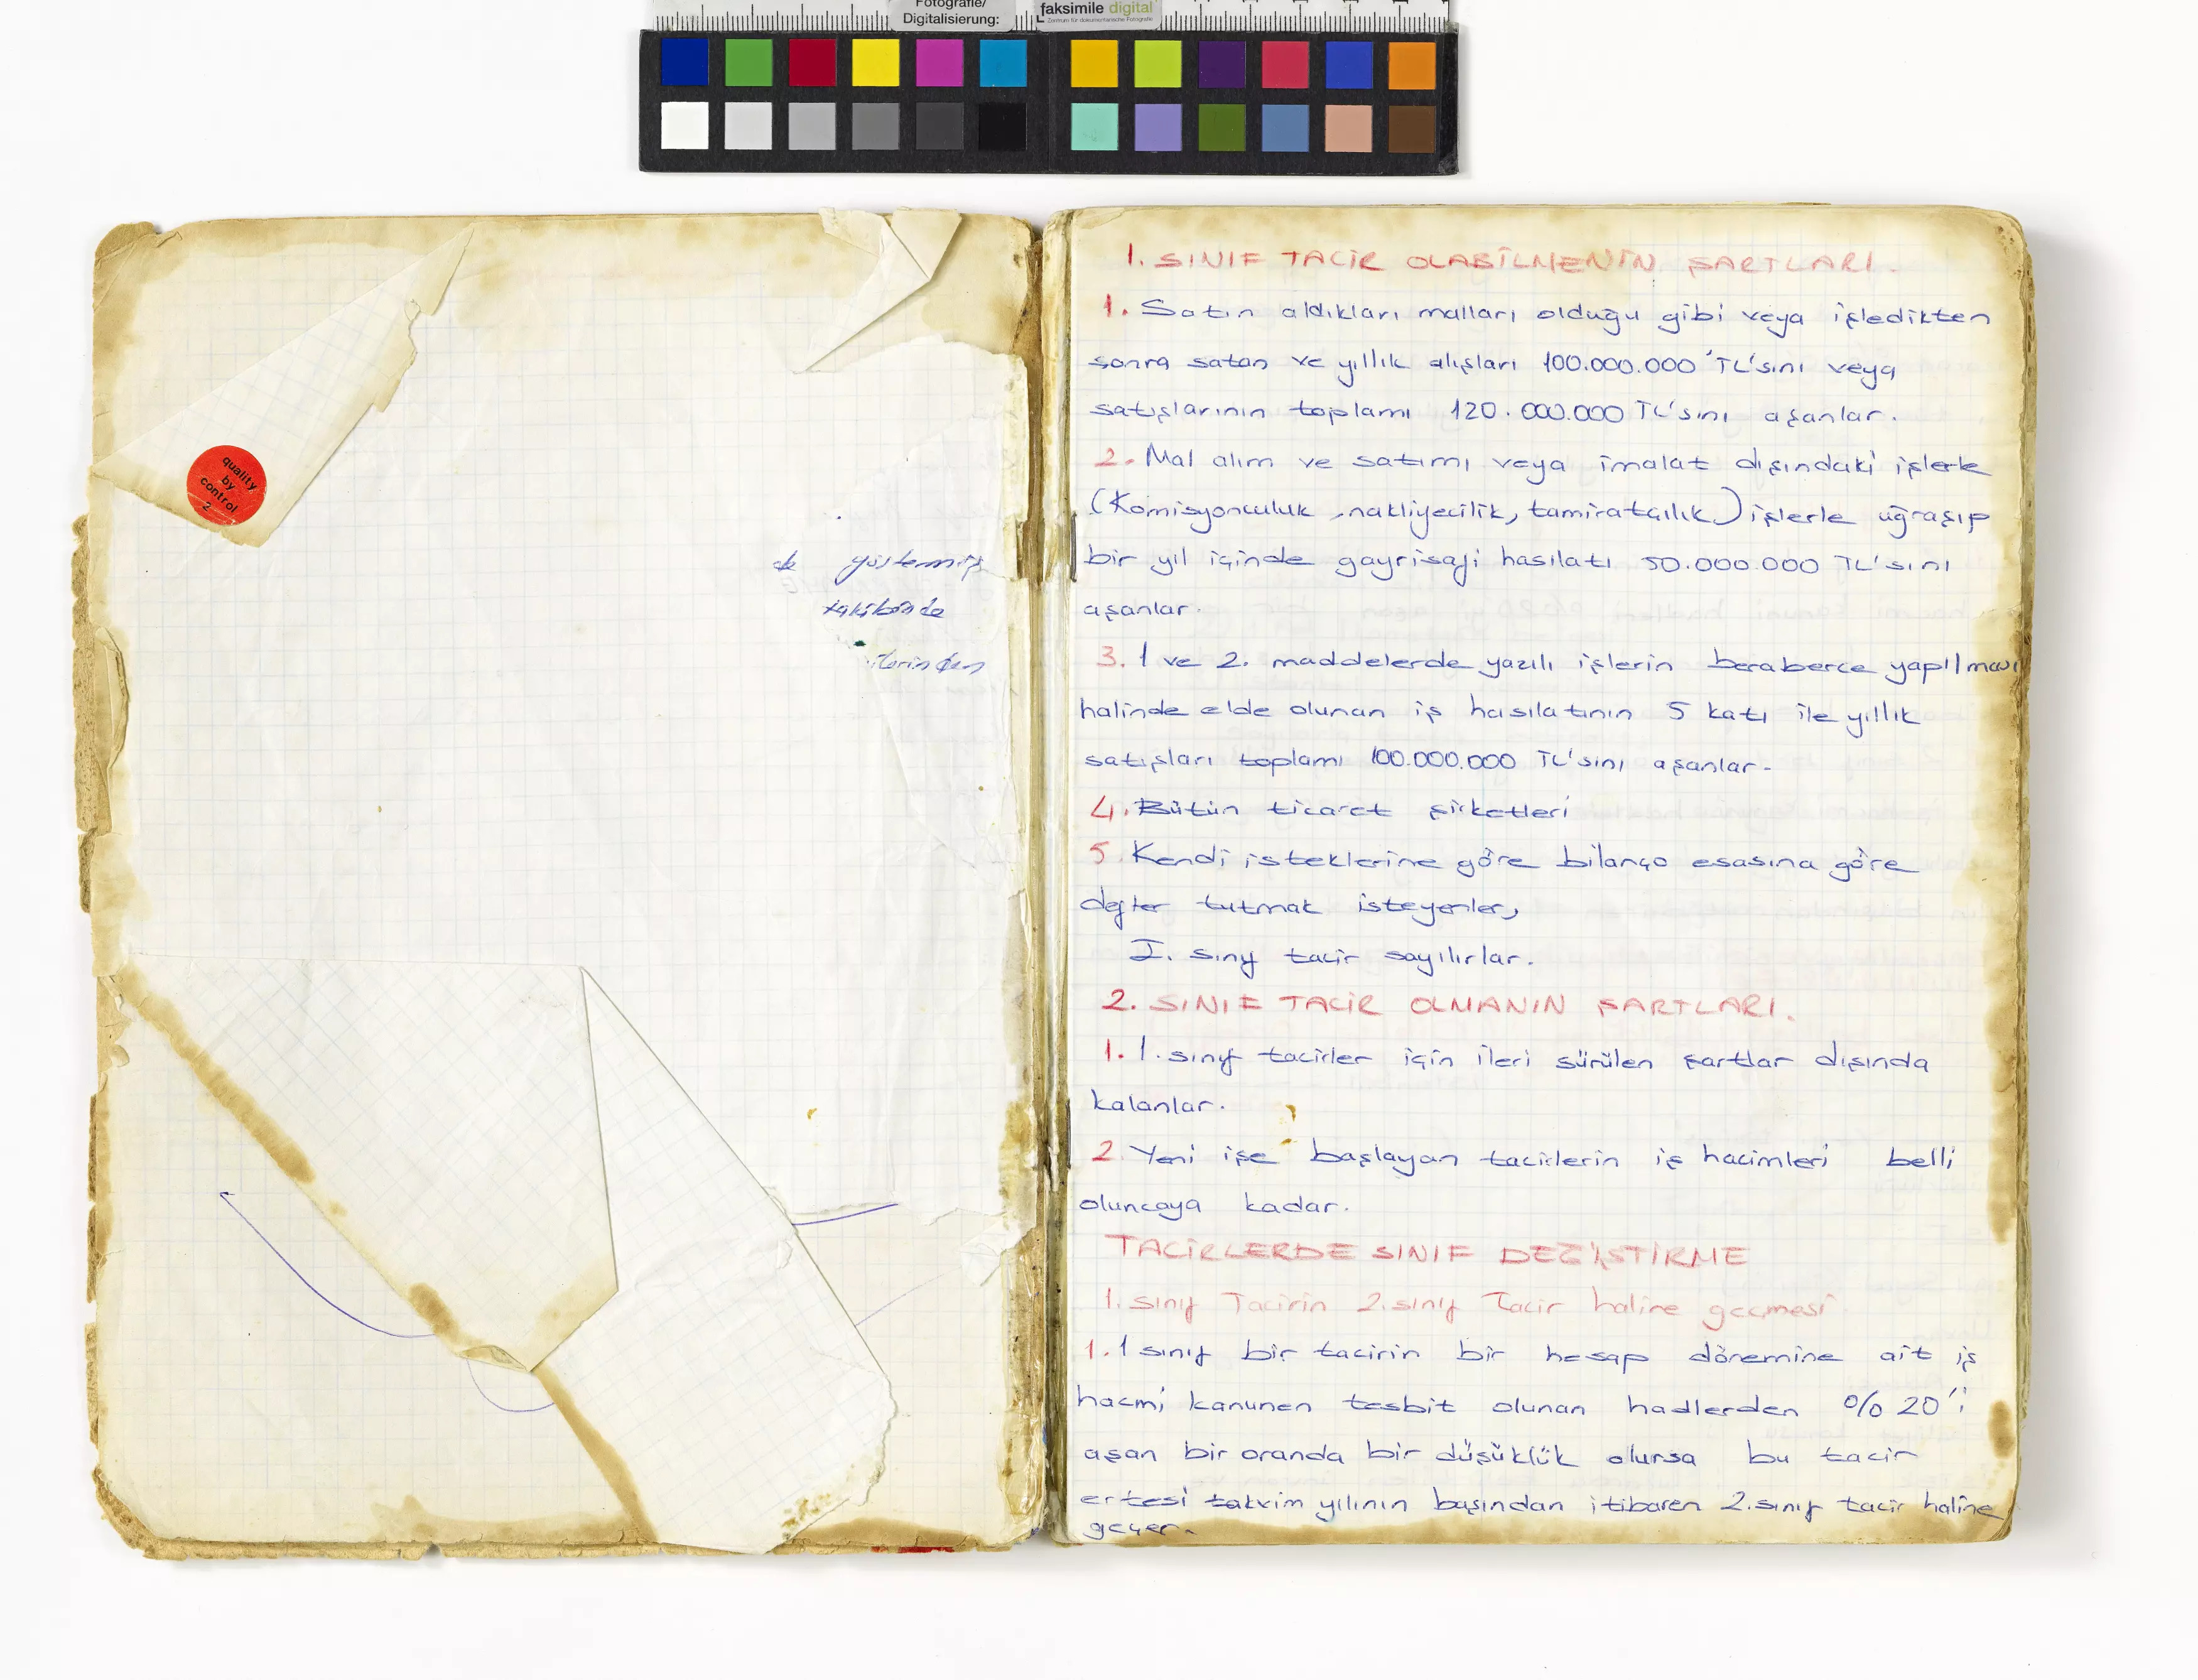 Fotografie/
Digitalisierung:
faksimile digital
Zentrum für dokumentarische Fotografie
quality
by
control
2
göstermiş
takibinde
1. SINIF TACİR OLABİLMENİN ŞARTLARI.
1. Satın aldıkları malları olduğu gibi veya işledikten
sonra satan ve yıllık alışları 100.000.000 'TL'sını veya
satışlarının toplamı 120.000.000 TL'sını aşanlar.
2. Mal alım ve satımı veya imalat dışındaki işlerle
(Komisyonculuk, nakliyecilik, tamiratçılık) işlerle uğraşıp
bir yıl içinde gayrisafi hasılatı 50.000.000 TL'sını
aşanlar.
3. 1 ve 2. maddelerde yazılı işlerin beraberce yapılması
halinde elde olunan iş hasılatının 5 katı ile yıllık
satışları toplamı 100.000.000 TL'sını aşanlar.
4. Bütün ticaret şirketleri
5. Kendi isteklerine göre bilanço esasına göre
defter tutmak isteyenler,
I. sınıf tacir sayılırlar.
2. SINIF TACİR OLMANIN ŞARTLARI.
1. 1. sınıf tacirler için ileri sürülen şartlar dışında
kalanlar.
2. Yeni işe başlayan tacirlerin iş hacimleri belli
oluncaya kadar.
TACİRLERDE SINIF DEĞİŞTİRME
1. sınıf Tacirin 2. sınıf Tacir haline geçmesi
1. 1 sınıf bir tacirin bir hesap dönemine ait iş
hacmi kanunen tesbit olunan hadlerden % 20'i
aşan bir oranda bir düşüklük olursa bu tacir
ertesi takvim yılının başından itibaren 2. sınıf tacir haline
geçer.